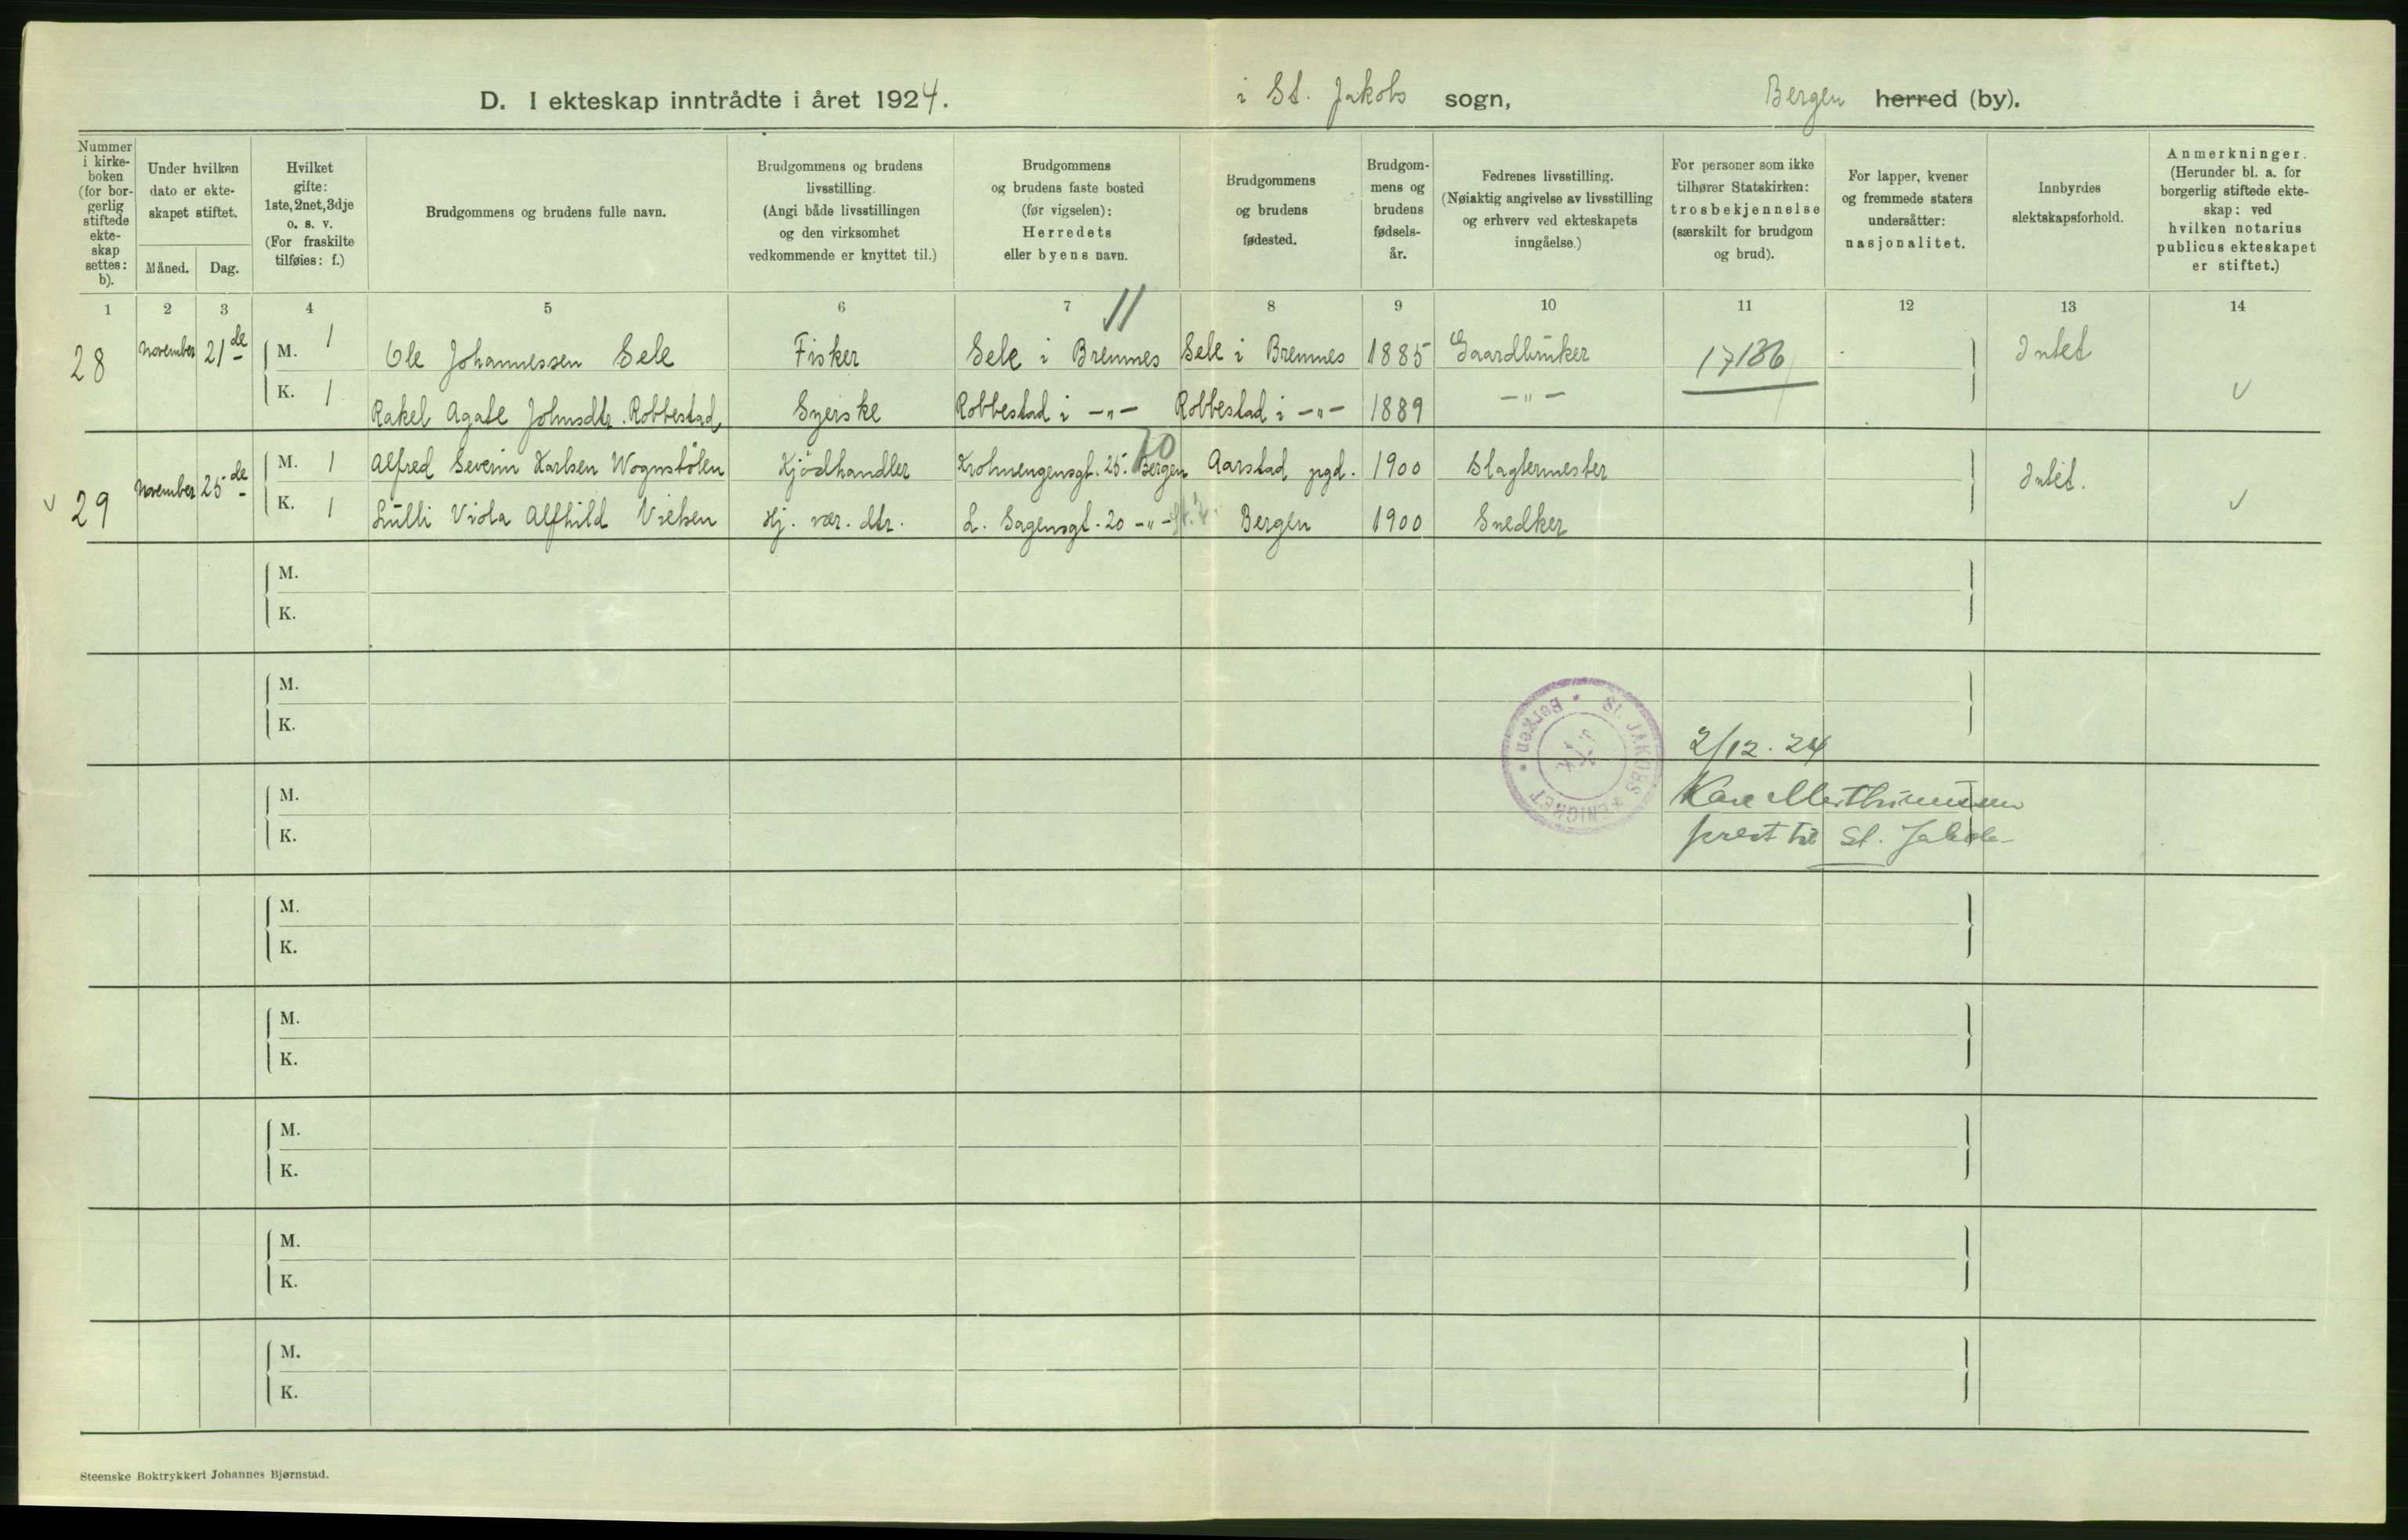 D. I ekteskap inntrådte i året 1924. i St. Jakobs sogn, Bergen herred (by).
Nummer i kirke-boken (for bor-gerlig stiftede ekte-skap settes: b).
Under hvilken dato er ekte-skapet stiftet.
Måned. Dag.
Hvilket gifte: 1ste, 2net, 3dje o. s. v. (For fraskilte tilføies: f.)
Brudgommens og brudens fulle navn.
Brudgommens og brudens livsstilling. (Angi både livsstillingen og den virksomhet vedkommende er knyttet til.)
Brudgommens og brudens faste bosted (før vigselen): Herredets eller byens navn.
Brudgommens og brudens fødested.
Brudgom-mens og brudens fødsels-år.
Fedrenes livsstilling. (Nøiaktig angivelse av livsstilling og erhverv ved ekteskapets inngåelse.)
For personer som ikke tilhører Statskirken: trosbekjennelse (særskilt for brudgom og brud).
For lapper, kvener og fremmede staters undersåtter: nasjonalitet.
Innbyrdes slektskapsforhold.
Anmerkninger. (Herunder bl. a. for borgerlig stiftede ekte-skap: ved hvilken notarius publicus ekteskapet er stiftet.)
1 2 3 4 5 6 7 8 9 10 11 12 13 14
11
28 November 21de M. 1 Ole Johannessen Sele Fisker Sele i Bremnes Sele i Bremnes 1885 Gaardbruker 17186 Intet
K. 1 Rakel Agate Johnsdtr. Robbestad Syerske Robbestad i -"- Robbestad i -"- 1889 -"- v
70
29 November 25de M. 1 Alfred Severin Karlsen Wognstölen Kjödhandler Krohnengensgt. 25. Bergen Aarstad pgd. 1900 Slagtermester Intet.
v K. 1 Lulli Viola Alfhild Nielsen Hj. vær. dtr. L. Sagensgt. 20 -"- Bergen 1900 Snedker v
M.
K.
M.
K.
St. JAKOBS MENIGHET • Bergen •
2/12. 24
M.
K.
prest til St. Jakob
M.
K.
M.
K.
M.
K.
M.
K.
M.
K.
Steenske Boktrykkeri Johannes Bjørnstad.